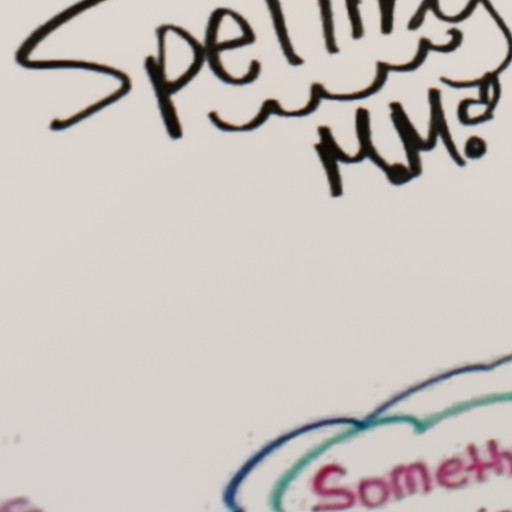 Spelling
M.M.
Someth